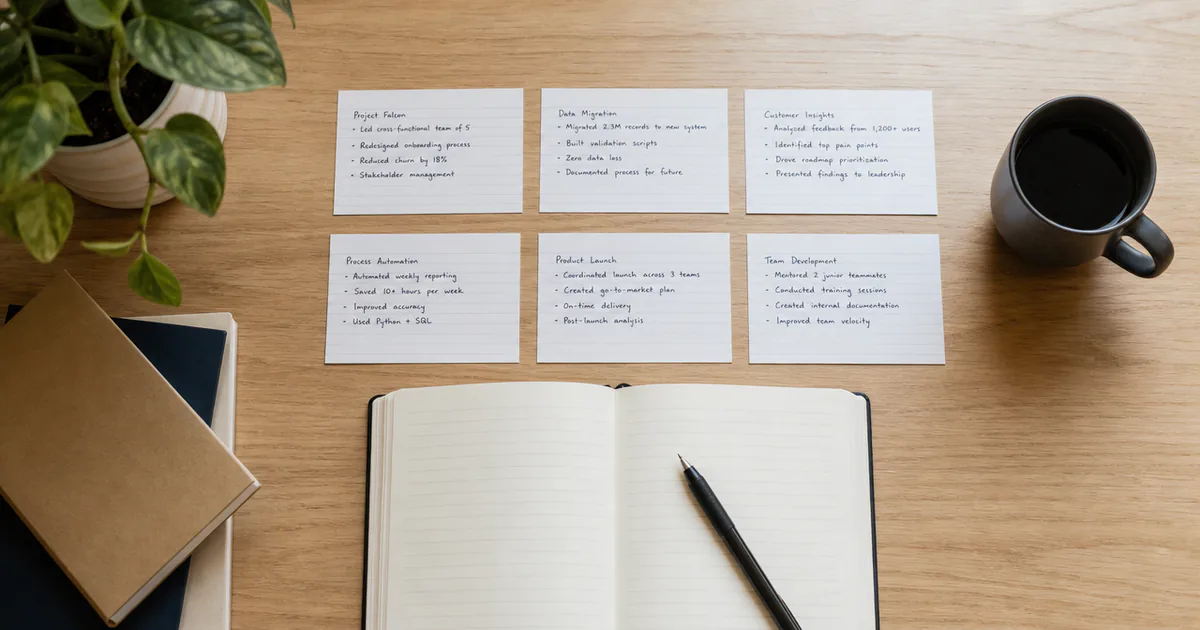 Project Falcon
- Led cross-functional team of 5
- Redesigned onboarding process
- Reduced churn by 18%
- Stakeholder management
Data Migration
- Migrated 2.3M records to new system
- Built validation scripts
- Zero data loss
- Documented process for future
Customer Insights
- Analyzed feedback from 1,200+ users
- Identified top pain points
- Drove roadmap prioritization
- Presented findings to leadership
Process Automation
- Automated weekly reporting
- Saved 10+ hours per week
- Improved accuracy
- Used Python + SQL
Product Launch
- Coordinated launch across 3 teams
- Created go-to-market plan
- On-time delivery
- Post-launch analysis
Team Development
- Mentored 2 junior teammates
- Conducted training sessions
- Created internal documentation
- Improved team velocity